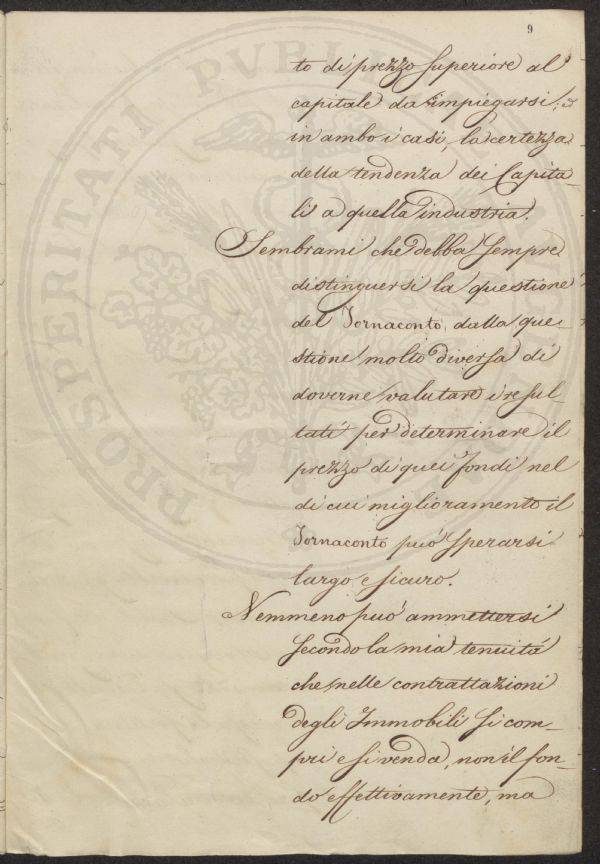 9
PROSPERITATI PUBLICAE
to di prezzo superiore al
capitale da impiegarsi; e
in ambo i casi, la certezza
della tendenza dei Capita-
li a quella industria.
Sembrami che debba sempre
distinguersi la questione
del Tornaconto, dalla que-
stione molto diversa di
doverne valutare i resul-
tati per determinare il
prezzo di quei fondi nel
di cui miglioramento il
Tornaconto può sperarsi
largo e sicuro.
Nemmeno può ammettersi
secondo la mia tenuità
che nelle contrattazioni
degli Immobili si com-
pri e si venda, non il fon-
do effettivamente, ma